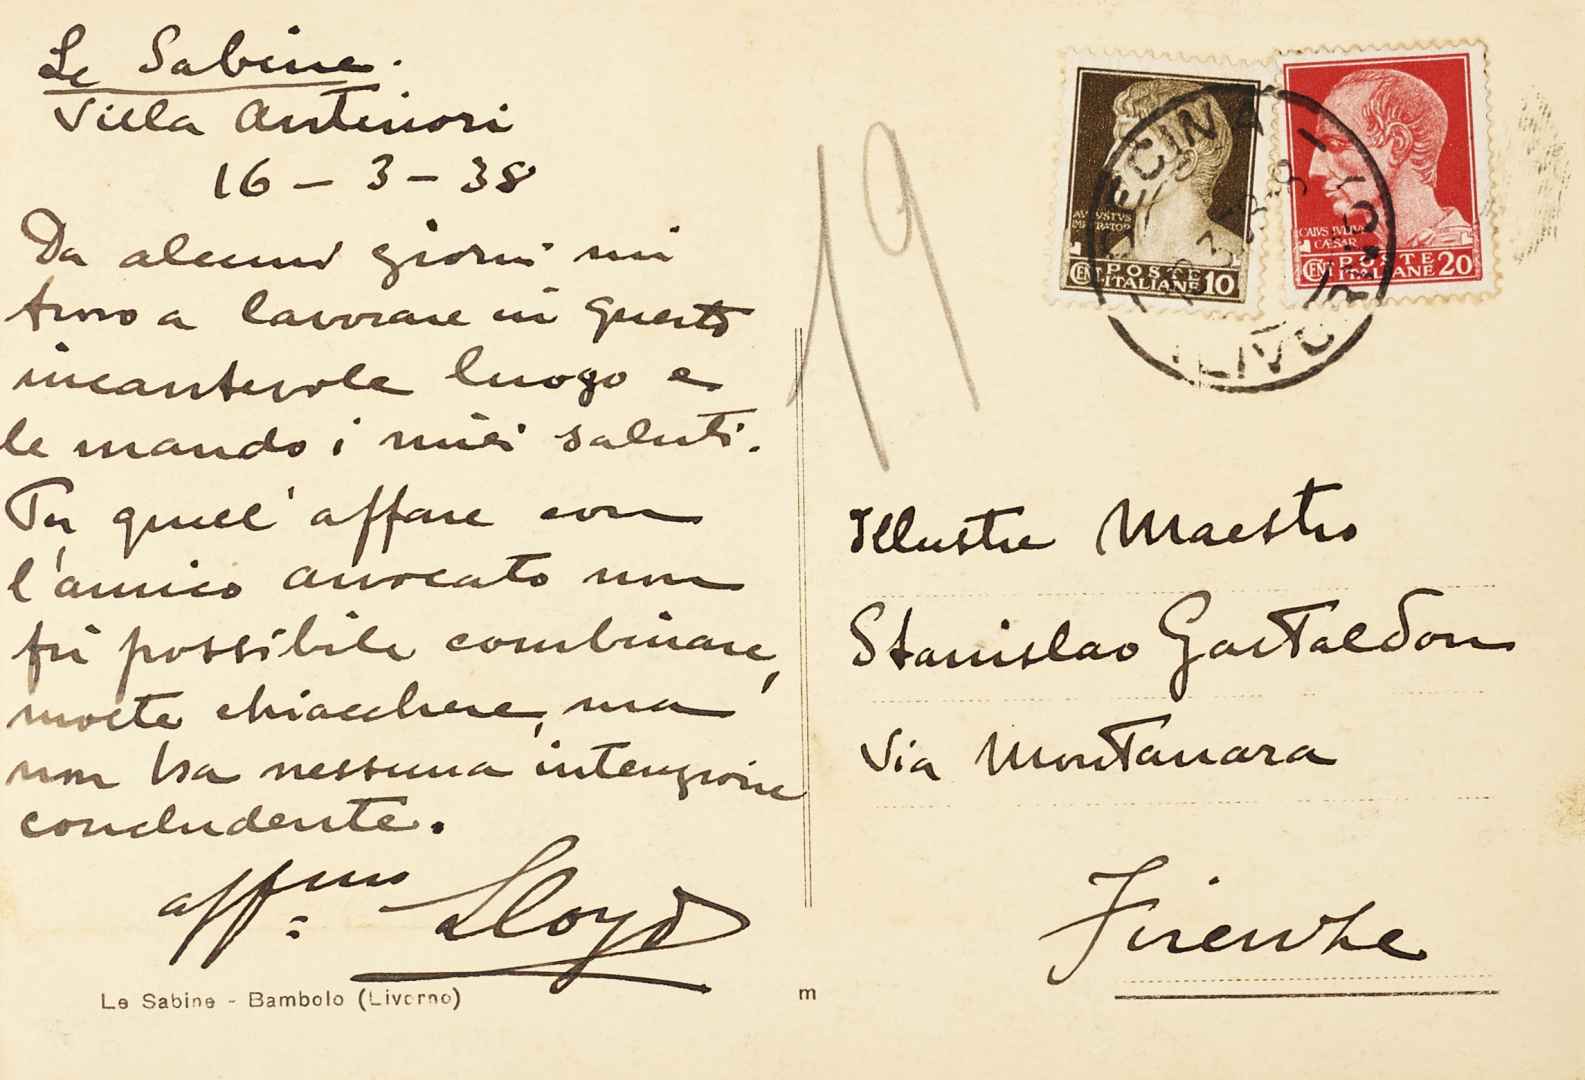 Le Sabine.
Villa Antinori
16 - 3 - 38
Da alcuni giorni mi
trovo a lavorare in questo
incantevole luogo e
le mando i miei saluti.
Per quell'affare con
l'amico avvocato non
fu possibile combinare,
molte chiacchere, ma
non ha nessuna intenzione
concludente.
affmo: Lloyd
Le Sabine - Bambolo (Livorno)
m
19
AVGVSTVS
IMPERATOR
CENT POSTE
ITALIANE 10
CAIVS IVLIVS
CÆSAR
CENT POSTE
ITALIANE 20
CECINA
LIVORNO
Illustre Maestro
Stanislao Gastaldon
Via Montanara
Firenze